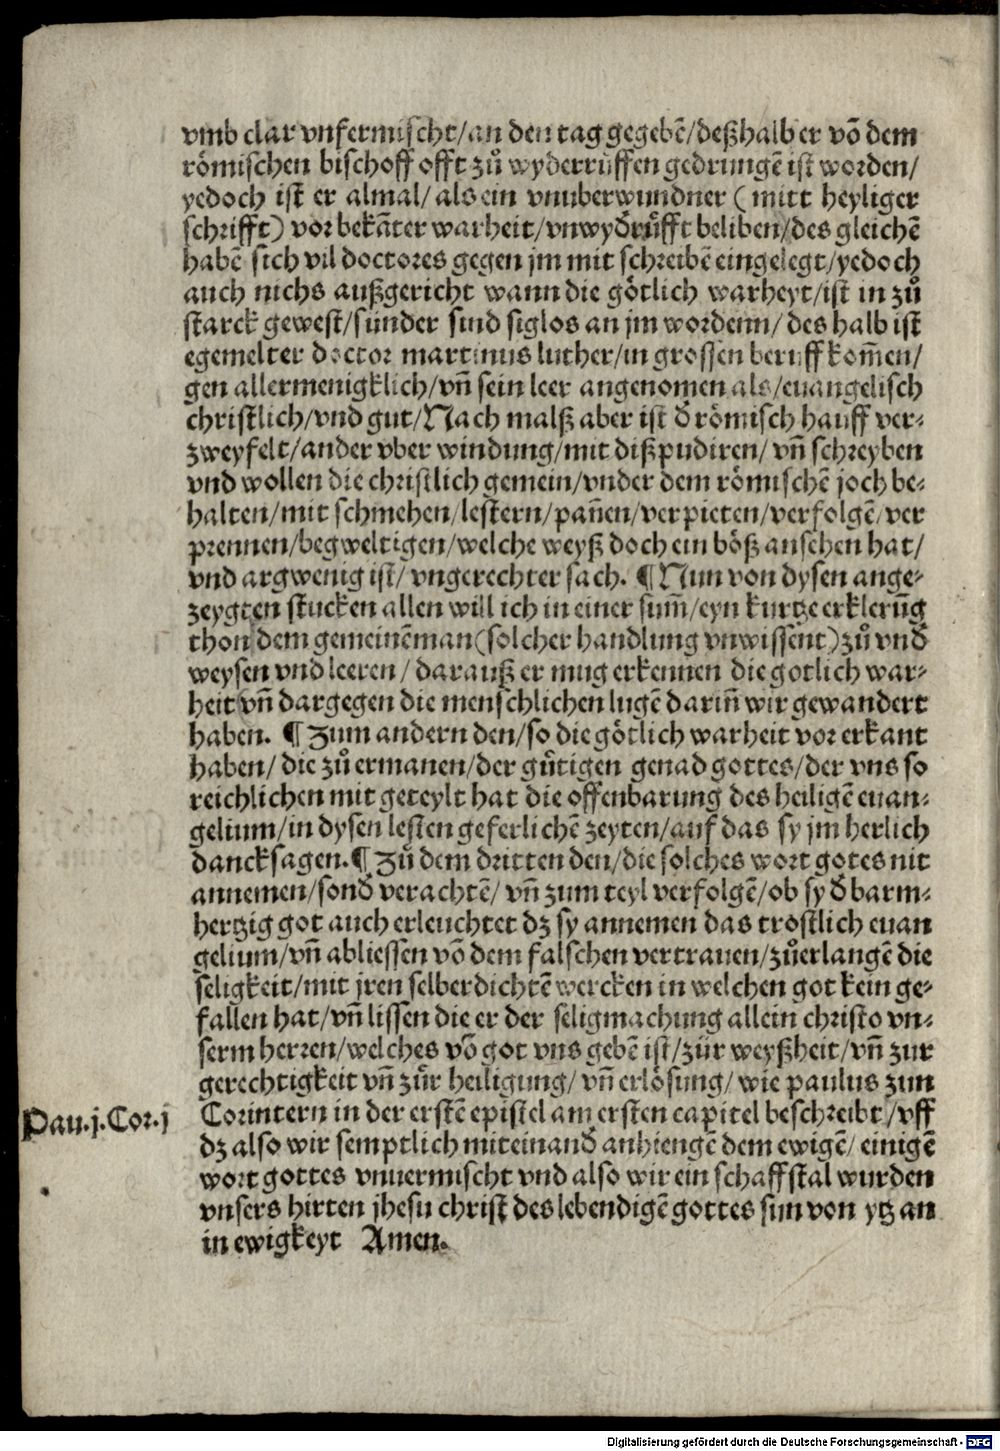 vmb clar vnfermischt/an den tag gegebē/deßhalb er vō dem
römischen bischoff offt zů wyderrüffen gedrungē ist worden/
yedoch ist er almal/ als ein vnuberwundner (mitt heyliger
schrifft) vor bekāter warheit/vnwyďrůfft beliben/des gleichē
habē sich vil doctores gegen jm mit schreibē eingelegt/yedoch
auch nichs außgericht wann die götlich warheyt/ist in zů
starck gewest/sunder sind siglos an jm wordenn/ des halb ist
egemelter doctor martinus luther/in grossen beruff kom̄en/
gen allermenigklich/vn̄ sein leer angenomen als/euangelisch
christlich/vnd gut/Nach malß aber ist ď römisch hauff ver⸗
zweyfelt/ander vber windung/mit dißpudiren/ vn̄ schreyben
vnd wollen die christlich gemein/vnder dem römischē joch be⸗
halten/mit schmehen/lestern/pan̄en/verpieten/verfolgē/ver
prennen/begweltigen/welche weyß doch ein böß ansehen hat/
vnd argwenig ist/ vngerechter sach. ¶ Nun von dysen ange⸗
zeygten stucken allen will ich in einer sum̄/eyn kurtze erklerūg
thon dem gemeinēman(solcher handlung vnwissent)zů vnď
weysen vnd leeren/ darauß er mug erkennen die gotlich war⸗
heit vn̄ dargegen die menschlichen lugē darin̄ wir gewandert
haben. ¶ Zum andern den/so die götlich warheit vor erkant
haben/ die zů ermanen/der gůtigen genad gottes/der vns so
reichlichen mit geteylt hat die offenbarung des heiligē euan⸗
gelium/in dysen lesten geferlichē zeyten/auf das sy jm herlich
dancksagen.¶ Zů dem dritten den/die solches wort gotes nit
annemen/sonď verachtē/ vn̄ zum teyl verfolgē/ob sy ď barm⸗
hertzig got auch erleuchtet dz sy annemen das tröstlich euan
gelium/vn̄ abliessen vō dem falschen vertrauen/zůerlangē die
seligkeit/mit jren selberdichtē wercken in welchen got kein ge⸗
fallen hat/vn̄ lissen die er der seligmachung allein christo vn⸗
serm herren/welches vō got vns gebē ist/zür weyßheit/vn̄ zur
gerechtigkeit vn̄ zůr heiligung/ vn̄ erlösung/ wie paulus zun
Pau.j.Cor.j Corintern in der erstē epistel am ersten capitel beschreibt/vff
dz also wir semptlich miteinanď anhiengē dem ewigē/ einigē
wort gottes vnuermischt vnd also wir ein schaffstal wurden
vnsers hirten jhesu christ des lebendigē gottes sun von ytz an
in ewigkeyt Amen.
Digitalisierung gefördert durch die Deutsche Forschungsgemeinschaft - DFG